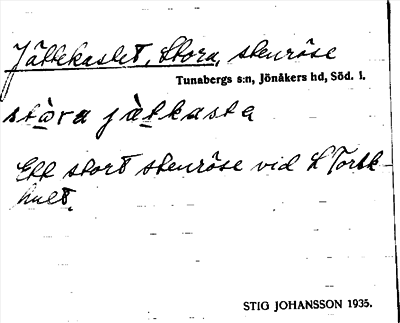 Jättekastet, Stora, stenröse
Tunabergs s:n, Jönåkers hd, Söd. l.
stora jätkasta
Ett stort stenröse vid L Torsk-
hult.
STIG JOHANSSON 1935.